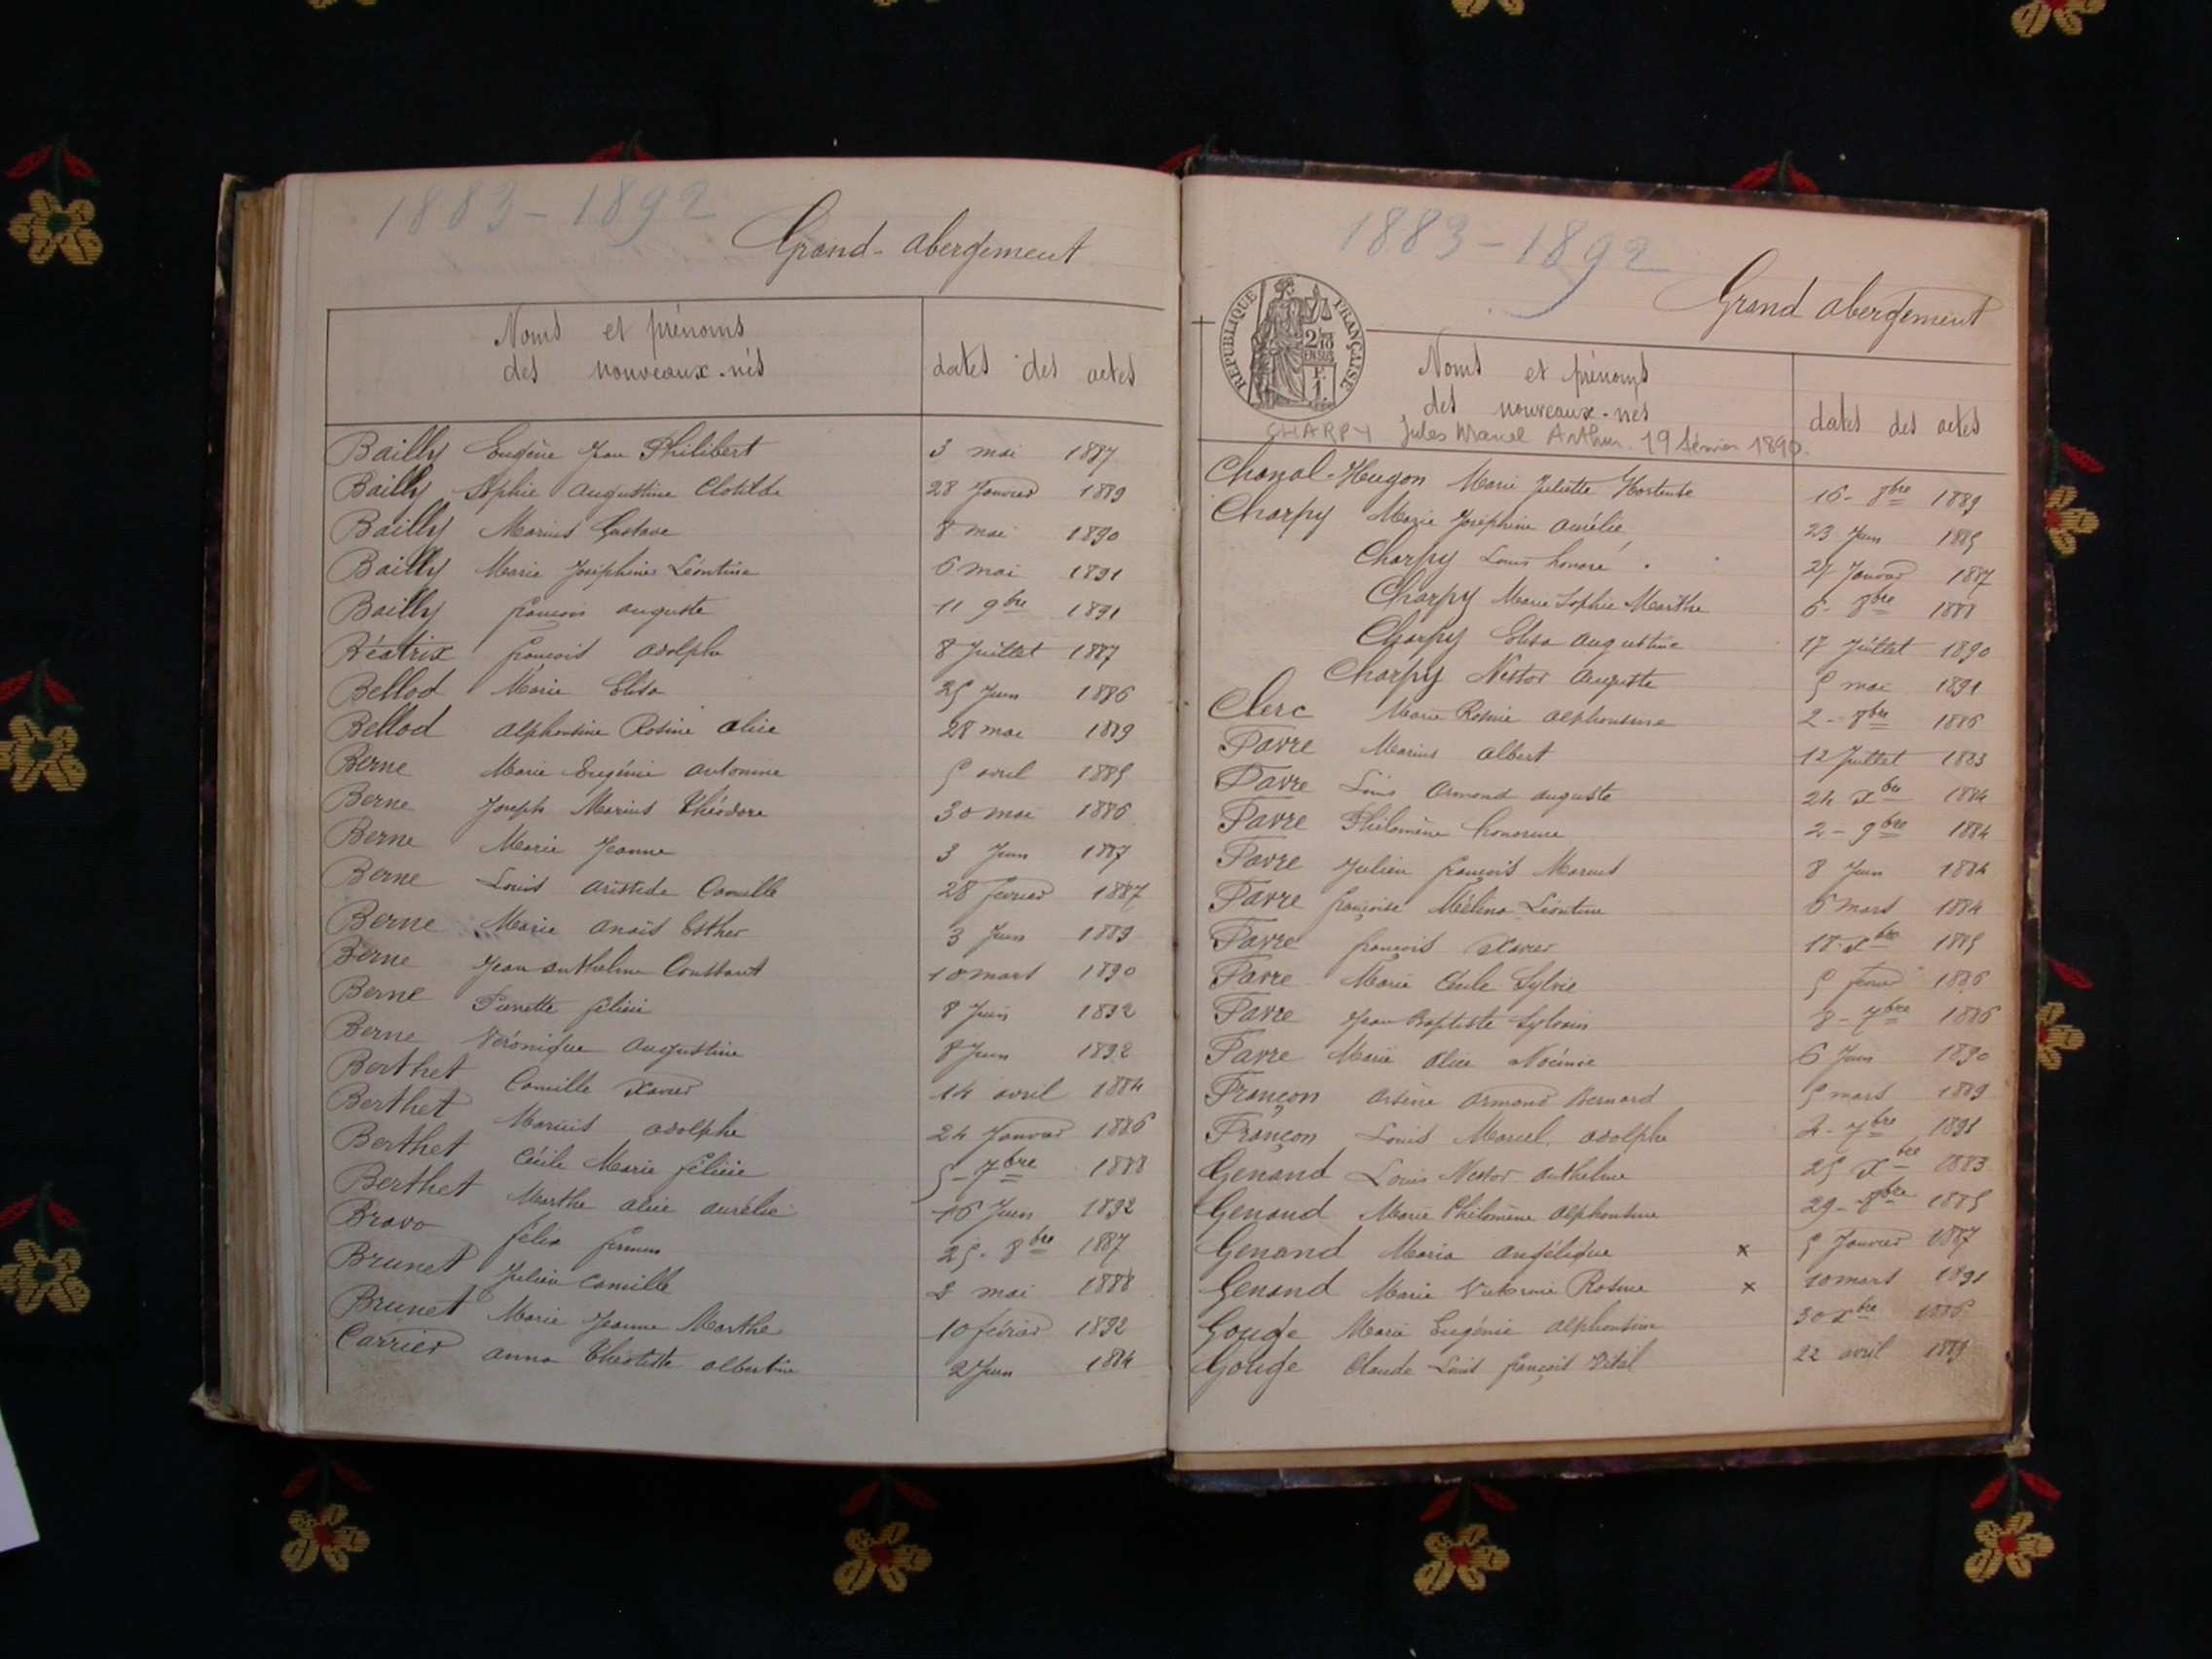 1883-1892
Grand-abergement
Noms et prénoms
des nouveaux-nés
dates des actes
Bailly Eugène Jean Philibert 3 mai 1887
Bailly Sophie augustine Clotilde 28 Janvier 1889
Bailly Marius Gustave 8 mai 1890
Bailly Marie Joséphine Léontine 6 mai 1891
Bailly françois auguste 11 9bre 1891
Béatrix françois adolphe 8 Juillet 1887
Bellod Marie Elisa 25 Juin 1886
Bellod alphonsine Rosine alice 28 mai 1889
Berne Marie Eugénie antonine 5 avril 1885
Berne Joseph Marius théodore 30 mai 1886
Berne Marie Jeanne 3 Juin 1887
Berne Louis aristide Camille 28 fevrier 1887
Berne Marie anaïs Esther 3 Juin 1889
Berne Jean anthelme Constant 10 mars 1890
Berne Pierrette félicie 8 Juin 1892
Berne Véronique augustine 8 Juin 1892
Berthet Camille Xavier 14 avril 1884
Berthet Marius adolphe 24 Janvier 1886
Berthet Cécile Marie félicie 5-7bre 1888
Berthet Marthe alice aurélie 16 Juin 1892
Bravo félix firmin 25-8bre 1887
Brunet Julien Camille 2 mai 1888
Brunet Marie Jeanne Marthe 10 février 1892
Carrier anna théotiste albertine 2 Juin 1884
1883-1892
Grand abergement
REPUBLIQUE FRANÇAISE
2/10
EN SUS
F.
1
Noms et prénoms
des nouveaux-nés
dates des actes
CHARPY Jules Marcel Arthur. 19 février 1890.
Chanal-Hugon Marie Juliette Hortense 16-8bre 1889
Charpy Marie Joséphine aurélie 23 Juin 1885
Charpy Louis honoré 27 Janvier 1887
Charpy Marie Sophie Marthe 6-8bre 1888
Charpy Elisa augustine 17 Juillet 1890
Charpy Nestor auguste 5 mai 1891
Clerc Marie Rosine alphonsine 2-8bre 1886
Favre Marius albert 12 Juillet 1883
Favre Louis armand auguste 24 Xbre 1884
Favre Philomène honorine 2-9bre 1884
Favre Julien françois Marius 8 Juin 1884
Favre françoise Mélina Léontine 6 mars 1884
Favre françois Xavier 18-Xbre 1885
Favre Marie Cécile Sylvie 5 fevrier 1886
Favre Jean Baptiste Sylvain 8-7bre 1886
Favre Marie alice Noémie 6 Juin 1890
Françon arsène armand Bernard 5 mars 1889
Françon Louis Marcel adolphe 2-7bre 1891
Genand Louis Nestor anthelme 25 Xbre 1883
Genand Marie Philomène alphonsine 29-8bre 1885
Genand Maria angélique x 5 Janvier 1887
Genand Marie Victorine Rosine x 10 mars 1891
Gouge Marie Eugénie alphonsine 30 Xbre 1886
Gouge Claude Louis françois Vital 22 avril 1889